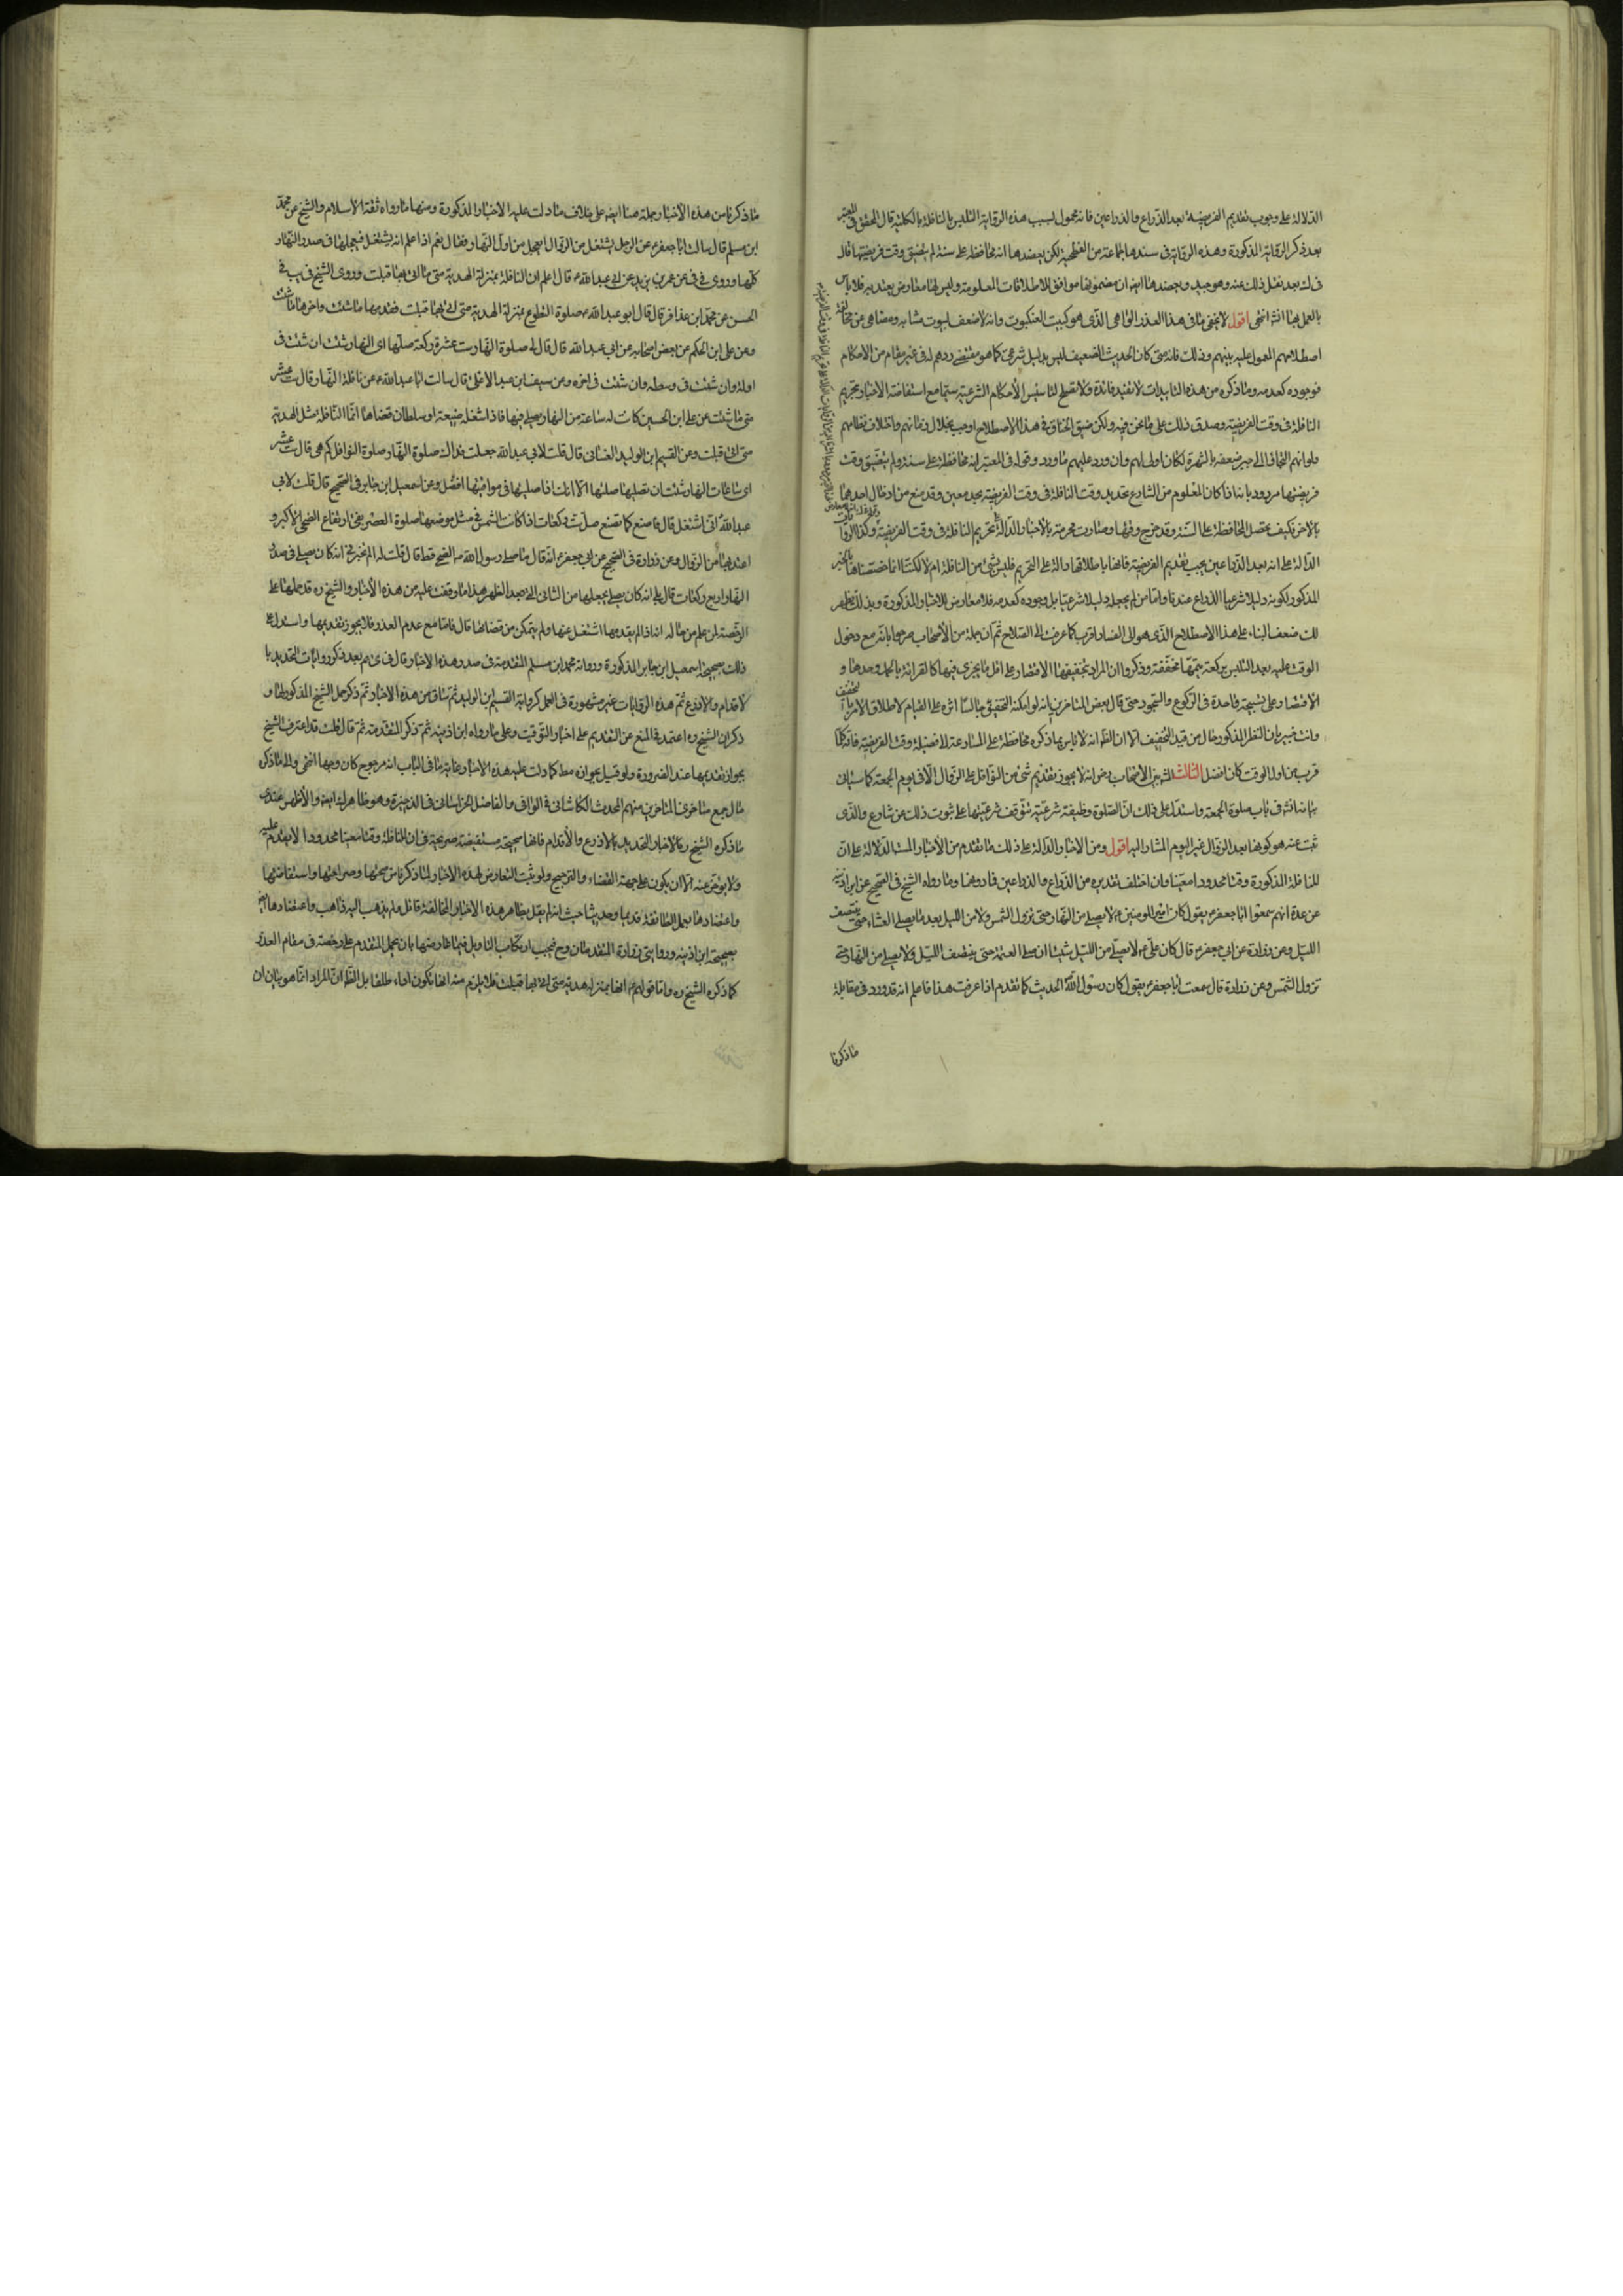 الدلالة على وجوب تقديم الفريضة بعد الذراع والذراعين فانه محمول بسبب هذه الرواية التلبس بالنافلة بالكلية قال المحقق في المعتبر
بعد ذكر الرواية المذكورة وهذه الرواية في سندها جماعة من الفطحية لكن يعضدها انه محافظة على سنة لم يتضيق وقت فريضتها قال
في ك بعد نقل ذلك عنه وهو جيد ويعضدها ايضا ان مضمونها موافق للاطلاقات المعلومة وليس لها معارض يعتد به فلا باس
بالعمل بها انشه انتهى اقول لا يخفى ما في هذا العذر الواهي الذي هو كبيت العنكبوت وانه لاضعف البيوت
اصطلاحهم المعول عليه بينهم وذلك فانه متى كان الحديث الضعيف ليس بدليل شرعي كما هو مقتضى ردهم له في غير مقام من الاحكام
فوجوده كعدمه وما ذكره من هذه التاييدات لا تفيد فائدة ولا تصلح لتاسيس الأحكام الشرعية سيما مع استفاضة الاخبار بتحريم
النافلة في وقت الفريضة وصدق ذلك على ما نحن فيه ولكن ضيق الخناق في هذا الاصطلاح اوجب
ولو انهم التجاوا الى جبر ضعفه بالشهرة لكان اولى لهم وان ورد عليهم ما ورد وقوله في المعتبر انه محافظة على سنة ولم يتضيق وقت
فريضتها مردود بانه اذا كان المعلوم من الشارع تحديد وقت النافلة في وقت الفريضة بحد معين وقد منع من ادخال احدهما
بالاخرى فكيف تحصل المحافظة على السنة وقد خرج وقتها وصارت محرمة بالأخبار الدالة على تحريم النافلة في وقت الفريضة وكذا الروايات
الدالة على انه بعد الذراعين يجب تقديم الفريضة فانها باطلاقها دالة على التحريم تلبس بشئ من النافلة ام لا لكنا انما خصصناها بالخبر
المذكور لكونه دليلا شرعيا عندنا واما من لم يجعله دليلا شرعيا بل وجوده كعدمه فلا معارض للاخبار المذكورة وبذلك يظهر
لك ضعف البناء على هذا الاصطلاح الذي هو الى الفساد اقرب كما عرفت الى الصلاح ثم ان جملة من الأصحاب صرحوا بانه مع دخول
الوقت عليه بعد التلبس بركعة يتمها مخففة وذكروا ان المراد بتخفيفها الاقتصار على اقل ما يجزي فيها كالقرائة بالحمد وحدها و
الاقتصار على تسبيحة واحدة في الركوع والسجود حتى قال بعض المتاخرين انه لو امكنه التخفيف جالسا اثره على القيام لاطلاق الامر بالتخفيف
وانت خبير بان النص المذكور خال من قيد التخفيف الا ان الظ انه لا باس بما ذكره محافظة على المسارعة لافضيلة وقت الفريضة فانه كلما
قرب من اول الوقت كان افضل الثالث المشهور بين الاصحاب رض انه لا يجوز تقديم شئ من النوافل على الزوال الا في يوم الجمعة كما سياتي
بيانه انشه في باب صلوة الجمعة واستدل على ذلك ان الصلوة وظيفة شرعية تتوقف شرعيتها على ثبوت ذلك من شارع والذي
ثبت عنه هو كونها بعد الزوال غير اليوم المشار اليه اقول ومن الاخبار الدالة على ذلك ما تقدم من الأخبار الدلالة على ان
للنافلة المذكورة وقتا محدودا معينا وان اختلف تقديره من الذراع والذراعين فما دونهما وما رواه الشيخ في الصحيح عن ابن اذينه
عن عدة انهم سمعوا ابا جعفر ع يقول كان امير المومنين ع لا يصلي من النهار حتى تزول الشمس ولا من الليل بعد ما يصلي العشاء حتى ينتصف
الليل وعن زرارة عن ابي جعفر ع قال كان علي ع لا يصلي من الليل شيئا اذا صلى العتمة حتى ينتصف الليل ولا يصلي من النهار حتى
تزول الشمس وعن زرارة قال سمعت ابا جعفر ع يقول كان رسول الله الحديث كما تقدم اذا عرفت هذا فاعلم انه قد ورد في مقابلة
ما ذكرنا
ما ذكرنا من هذه الأخبار جملة منها ايضا على خلاف ما دلت عليه الاخبار المذكورة ومنها ما رواه ثقة الأسلام والشيخ عن محمد
ابن مسلم قال سالت ابا جعفر ع عن الرجل يشتغل من الزوال ايعجل من اول النهار فقال نعم اذا علم انه يشتغل فيعجلها في صدر النهار
كلها وروى في في عن عمر بن يزيد عن ابي عبد الله ع قال اعلم ان النافلة بمنزلة الهدية متى ما اتى بها قبلت وروى الشيخ في يب في
الحسن عن محمد ابن عذافر قال قال ابو عبد الله ع صلوة التطوع بمنزلة الهدية متى اتي بها قبلت فقدم منها ما شئت واخر منها ما شئت
وعن علي ابن الحكم عن بعض اصحابه عن ابي عبد الله قال قال لي صلوة النهار ست عشرة ركعة صلها اي النهار شئت ان شئت في
اوله وان شئت في وسطه وان شئت في اخره وعن سيف ابن عبد الاعلى قال سالت ابا عبد الله ع عن نافلة النهار قال ست عشر
متى ما شئت ان علي ابن الحسين كانت له ساعة من النهار يصلي فيها فاذا شغله ضيعة او سلطان قضاها انما النافلة مثل الهدية
متى اتي بها قبلت وعن القسم ابن الوليد الغساني قال قلت لابي عبد الله جعلت فداك صلوة النهار صلوة النوافل كم هي قال ست عشر
اي ساعات النهار شئت ان تصليها صليتها الا انك اذا صليتها في مواقيتها افضل وعن اسمعيل ابن جابر في الصحيح قال قلت لابي
عبد الله اني اشتغل قال فاصنع كما نصنع صل ست ركعات اذا كانت الشمس في مثل موضعها صلوة العصر يعني ارتفاع الضحى الأكبر و
اعتد بها من الزوال وعن زرارة في الصحيح عن ابي جعفر ع انه قال ما صلى رسول الله ص الضحى قط قال قلت له الم تخبرني انه كان يصلي في صدر
النهار اربع ركعات قال بلى انه كان يصلي يجعلها من الثمان التي بعد الظهر هذا ما وقفت عليه من هذه الأخبار والشيخ ره قد حملها على
الرخصة لمن علم من حاله انه اذا لم يقدمها اشتغل عنها ولم يتمكن من قضائها قال فاما مع عدم العذر فلا يجوز تقديمها واستدل على
ذلك بصحيحة اسمعيل ابن جابر المذكورة ورواية محمد ابن مسلم المتقدمة في صدر هذه الاخبار قال في بعد ذكر روايات التحديد با
لاقدام والاذرع ثم هذه الروايات غير مشهورة في العمل كرواية القسم ابن الوليد ثم ساق من هذه الاخبار ثم ذكر حمل الشيخ المذكور لها و
ذكر ان الشيخ ره اعتمد في المنع عن التقديم على اخبار التوقيت وعلى ما رواه ابن اذينه ثم ذكر المتقدمة ثم قال قلت قد اعترف الشيخ
بجواز تقديمها عند الضرورة ولو قيل بجوازه مط كما دلت عليه هذه الاخبار غاية ما في الباب انه مرجوح كان وجها انتهى والى ما ذكره
مال جمع من متاخري المتاخرين منهم المحدث الكاشاني في الوافي والفاضل الخراساني في الذخيرة وهو ظاهر ك ايضا والأظهر عندي
ما ذكره الشيخ ره لاخبار التحديد بالاذرع والأقدام فانها صحيحة مستفيضة صريحة في ان للنافلة وقتا معينا محدودا لا يقدم عليه
ولا يؤخر عنه الا ان يكون على جهة القضاء والترجيح ولو ثبت التعارض لهذه الاخبار لما ذكرنا من صحتها وصراحتها واستفاضتها
واعتضادها بعمل الطائفة قديما وحديثا حيث انه لم يقل بظاهر هذه الاخبار المخالفة قائل ولم يذهب اليه ذاهب واعتضادها ايضا
بصحيحة ابن اذينه وروايتي زرارة المتقدمتان وح فيجب ارتكاب التاويل فيما عارضها بان يحمل المتقدم على رخصة في مقام العذر
كما ذكره الشيخ ره واما قولهم ع انها بمنزلة هدية متى اتي بها قبلت فلا يلزم منه انها تكون اداء مطلقا بل الظ ان المراد انما هو بيان ان